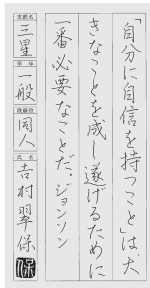 「自分に自信を持つこと」は大
きなことを成し遂げるために
一番必要なことだ。ジョンソン
支部名 三星 学年 一般 段級位 同人 氏名 吉村翠保